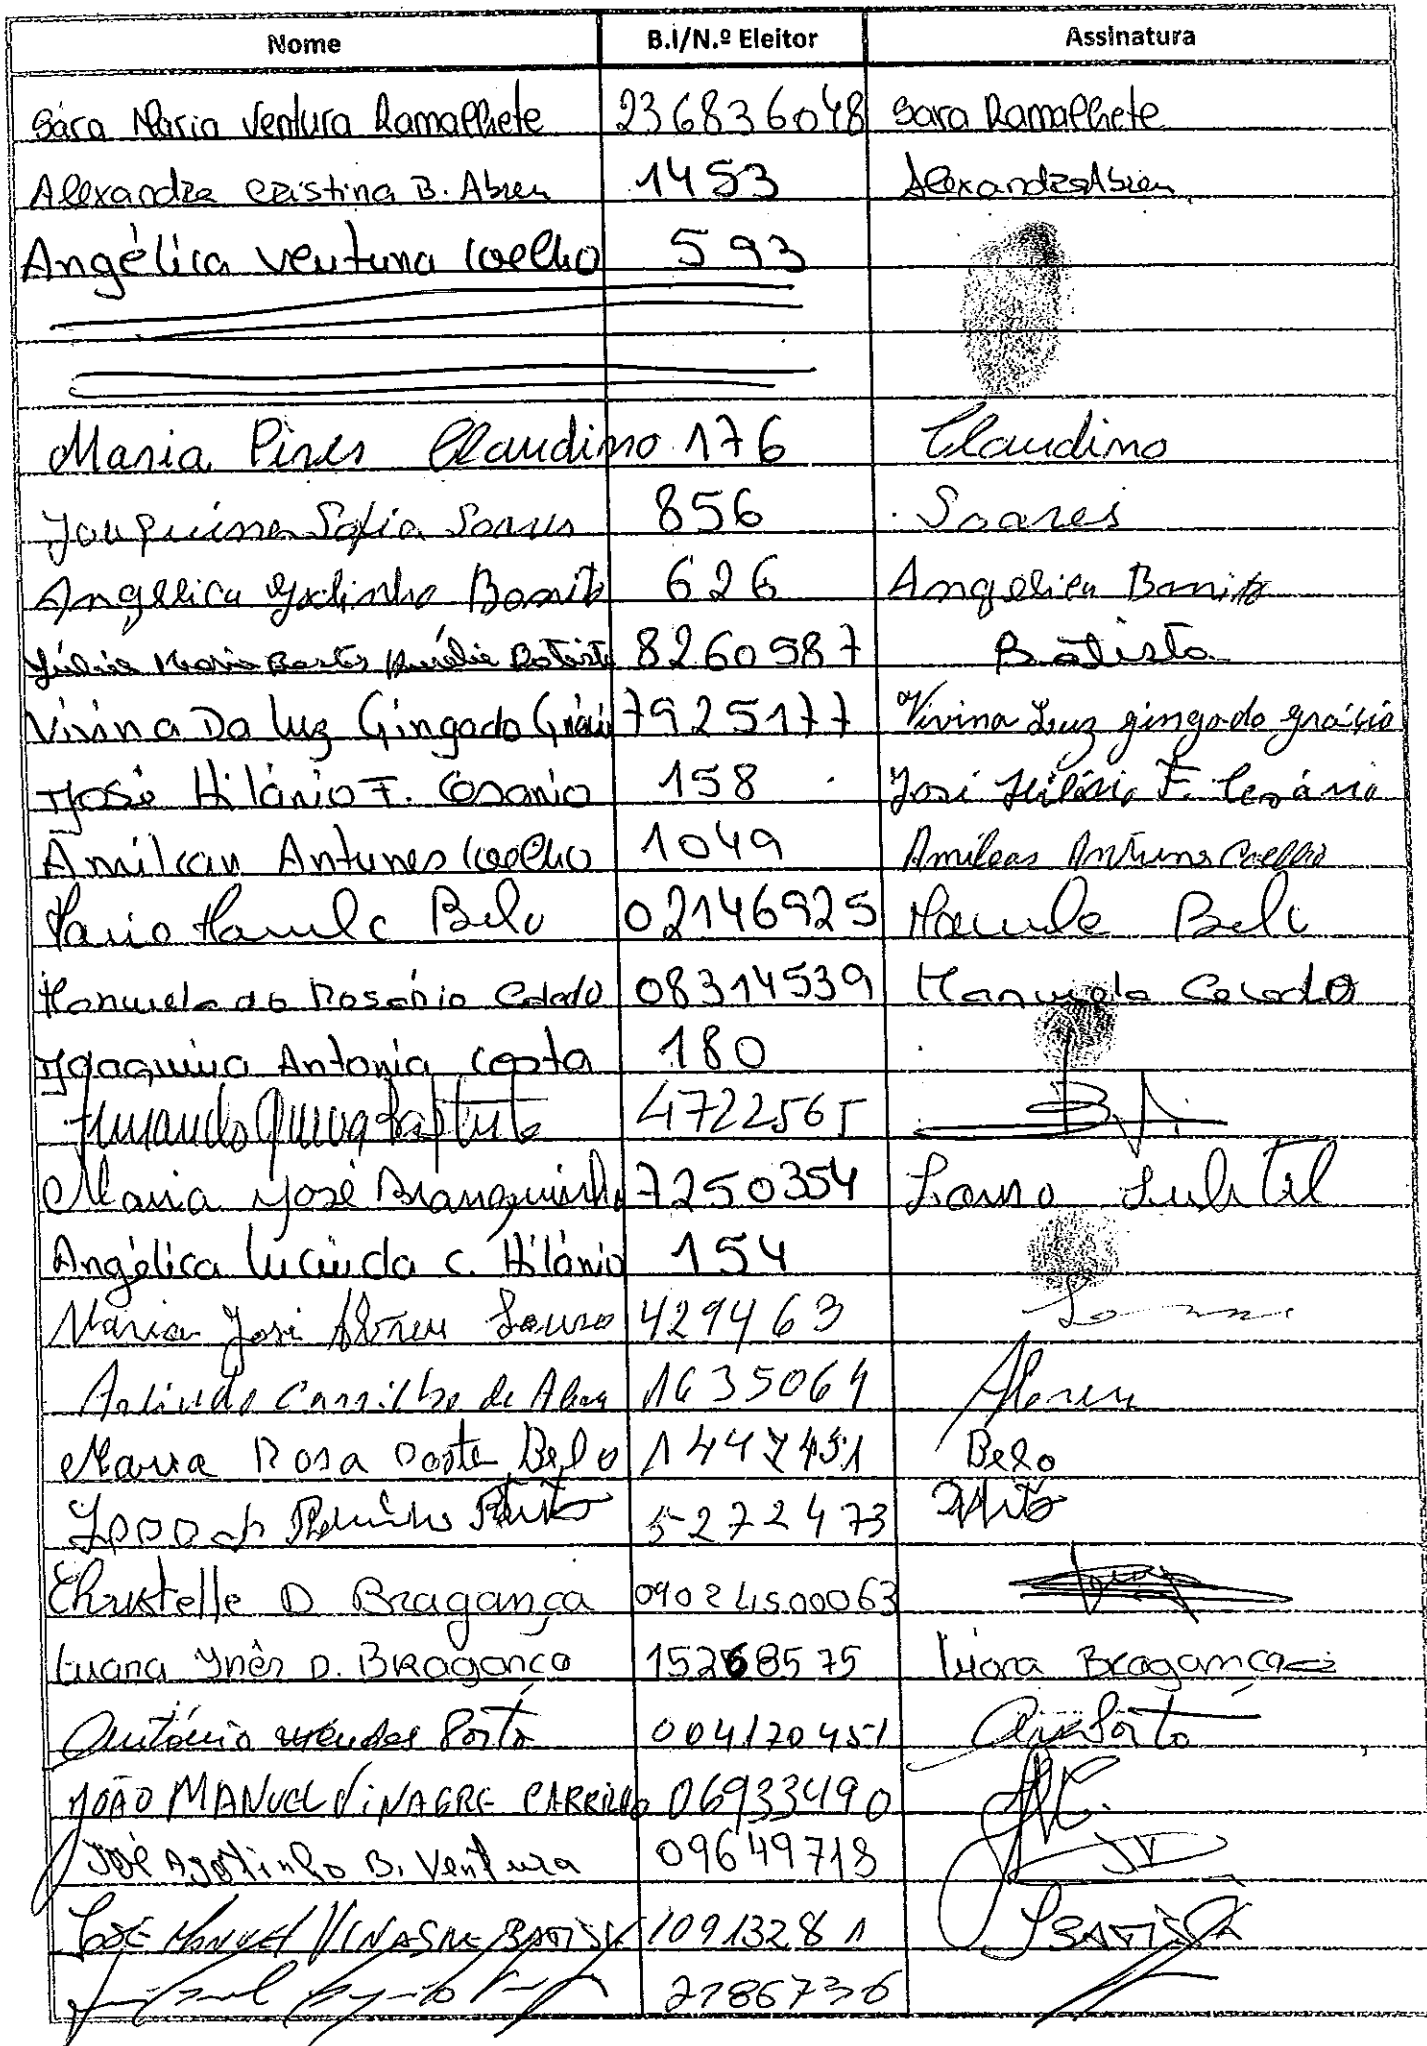 Nome B.I/N.º Eleitor Assinatura
Sara Maria Ventura Ramalhete 236836048 Sara Ramalhete
Alexandra Cristina B. Abreu 1453 Alexandra Abreu
Angélica Ventura Coelho 593
Maria Pires Claudino 176 Claudino
Joaquina Sofia Soares 856 Soares
Angélica Godinho Bonito 626 Angélica Bonito
Júlia Maria Bastos Aurélio Batista 8260587 Batista
Vivina Da luz Gingado Grácio 7925177 Vivina Luz gingado grácio
José Hilário F. Cesário 158 José Hilário F. Cesário
Amilcar Antunes Coelho 1049 Amilcar Antunes Coelho
Maria Manuela Belo 02146925 Manuela Belo
Manuela do Rosário Calado 08314539 Manuela Calado
Joaquina Antonia Costa 180
4722565
Maria José Branquinho 7250354
Angélica Lucinda C. Hilário 154
Maria José Abreu Louro 429463
Arlindo Carrilho de Abreu 1635064 Abreu
Maria Rosa Costa Belo 1447451 Belo
5272473
Christelle D Bragança 09024500063
Luana Ynês D. Bragança 15268575 Luana Bragança
António Mendes Porto 004170451
JOÃO MANUEL VINAGRE CARRILHO 06933490
José Agostinho B. Ventura 09649718 JV
JOSÉ MANUEL VINAGRE BATISTA 10913281 JBATISTA
2786736